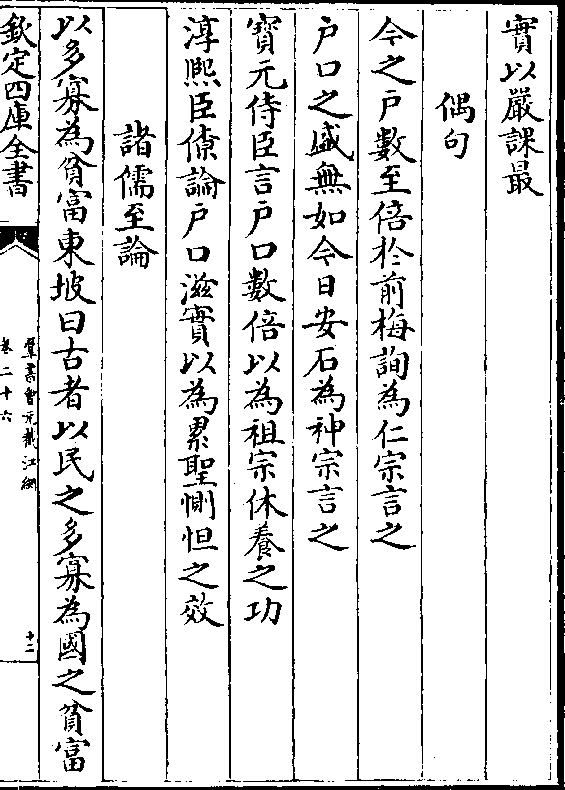 實以嚴課最
偶句
今之戶數至倍於前梅詢為仁宗言之
戶口之盛無如今日安石為神宗言之
寳元侍臣言戶口數倍以為祖宗休養之功
淳熈臣僚論戶口滋實以為累聖惻怛之效
諸儒至論
以多寡為貧富東坡曰古者以民之多寡為國之貧富
欽定四庫全書
羣書㑹元截江網
卷二十六
十二